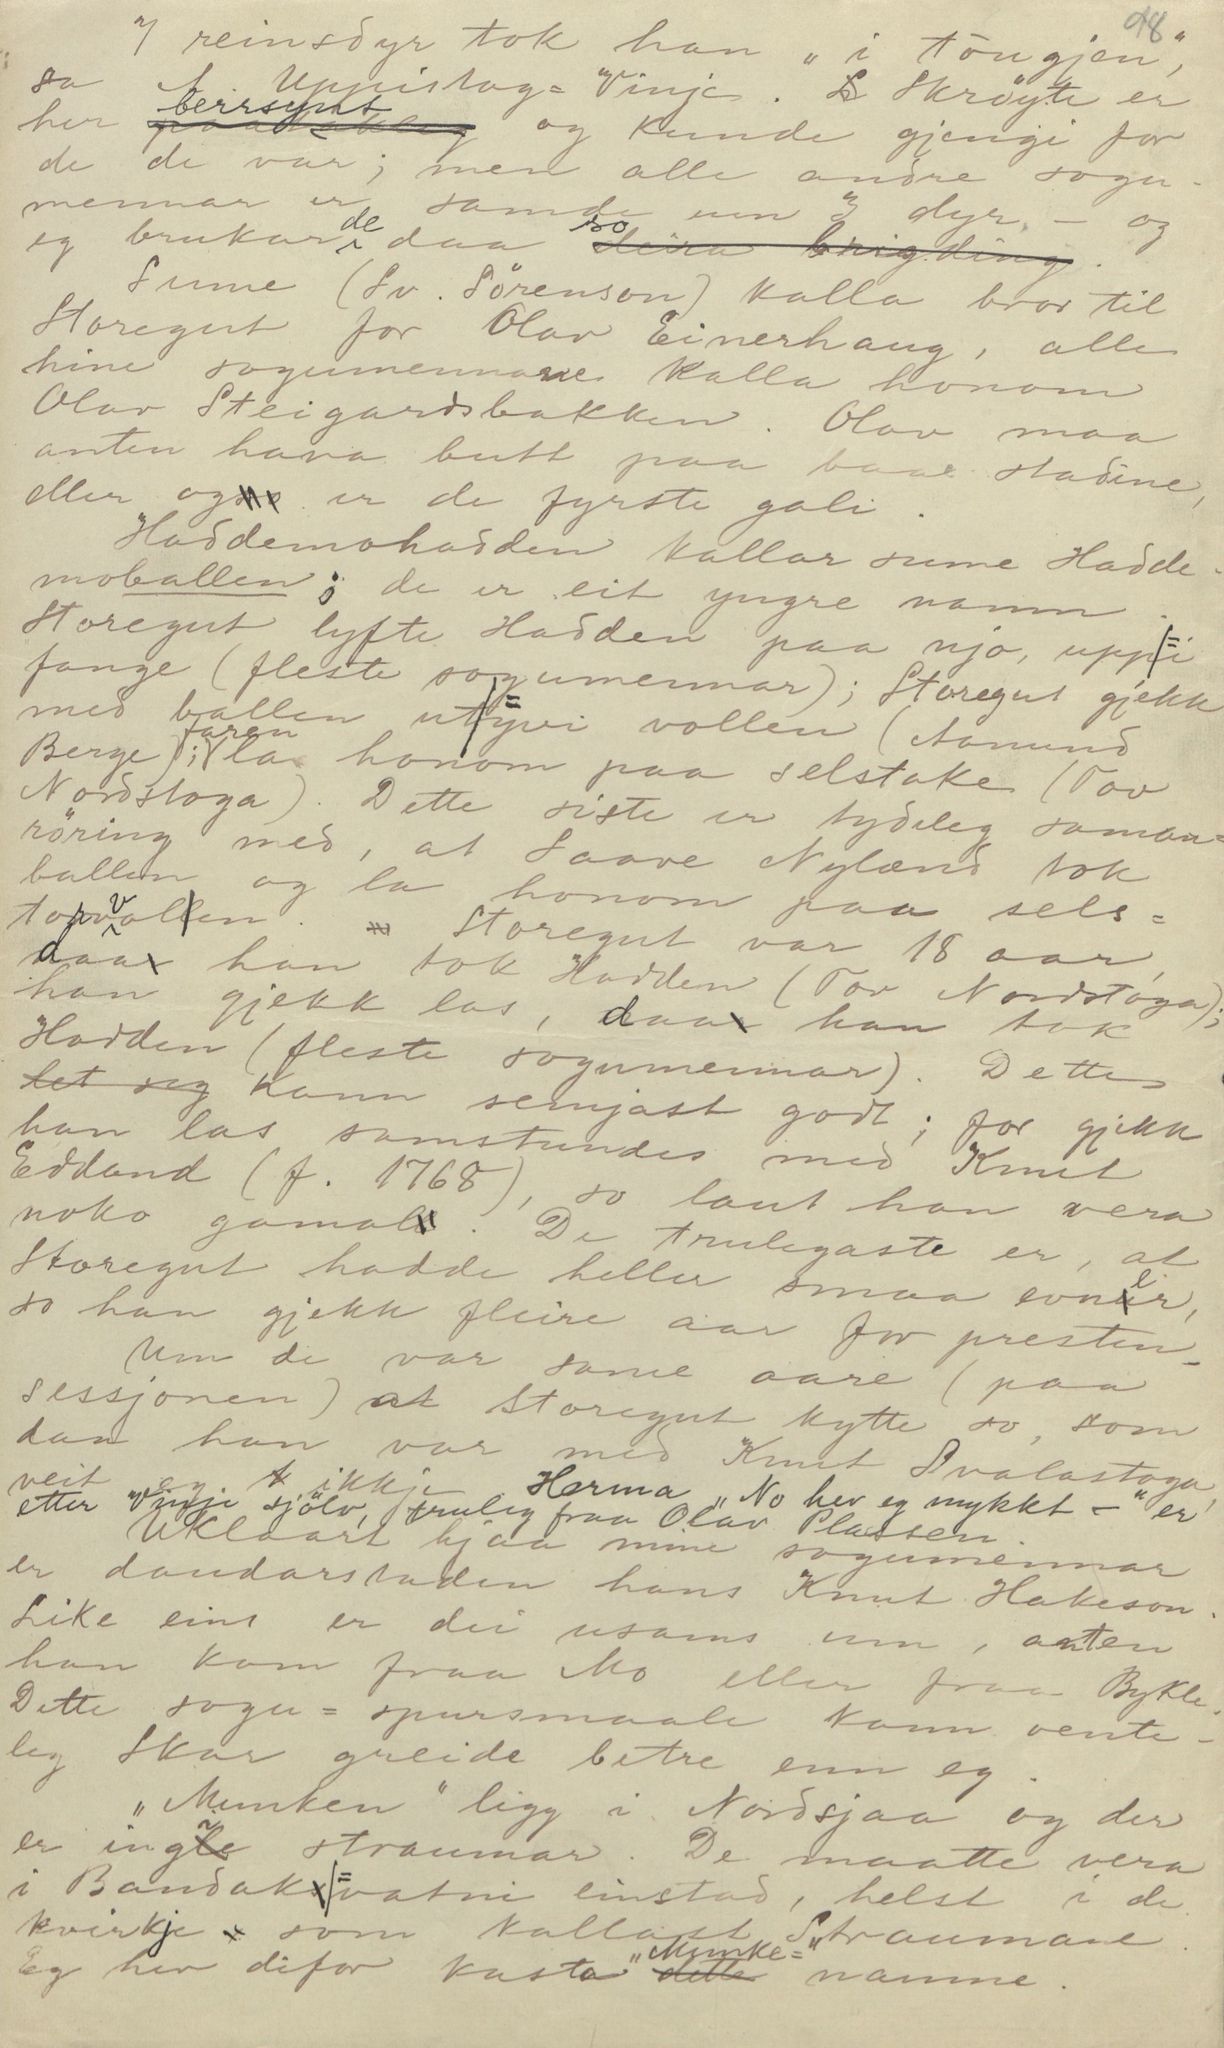 98
7 reinsdyr tok han „i tougjen,"
sa A Uppistog= Vinje. Skröyte er
her berrsynt og kunde gjengi for
de de var; men alle andre sogu-
mennar er samde um 3 dyr, – og
eg brukar de daa so.
Sume (Sv. Sörenson) kalla bror til
Storegut for Olav Einerhaug, alle
hine sogumennarne kalla honom
Olav Steigardsbakken. Olav maa
anten hava butt paa baae stadine,
eller og er de fyrste gali.
Haddemohadden kallar sume Hadde-
moballen; de er eit yngre namn.
Storegut lyfte Hadden paa njo, upp=i
fange (fleste sogumennar); Storegut gjekk
med ballen ut=yvi vollen (Aamund
Berge); faren la honom paa selstake (Tov
Nordstoga). Dette siste er tydeleg saman=
röring med, at Saave Nylænd tok
ballen og la honom paa sels=
torvolen. Storegut var 18 aar,
daa han tok Hadden (Tov Nordstoga);
han gjekk las, daa han tok
Hadden (fleste sogumennar). Dette
let seg kann semjast godt; for gjekk
han las samstundes med Knut
Eddand (f. 1768), so laut han vera
noko gamal. De trulegaste er, at
Storegut hadde heller smaa evner,
so han gjekk fleire aar for presten.
Um de var same aare (paa
sessjonen) at Storegut kytte so, som
dan han var med Knut Svalastoga,
veit eg ikkje. Herma „No hev eg mykkt –" er
etter Vinje sjölv, truleg fraa Olav Plassen.
Uklaart hjaa mine sogumennar
er daudarstaden hans Knut Hakeson.
Like eins er dei usams um, anten
han kom fraa Mo eller fraa Bykle.
Dette sogu=spursmaale kann vente-
leg Skar greide betre enn eg.
„Munken" ligg i Nordsjaa og der
er ingje straumar. De maatte vera
i Bandak=vatni einstad, helst i de
kvirkje som kallast Straumane.
Eg hev difor kasta „Munke="
dette namne.